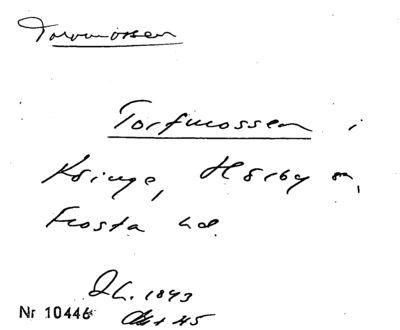 Torvmossen
Torfmossen i
Kringe, Hörby sn,
Frosta hd.
1893
Nr 10446